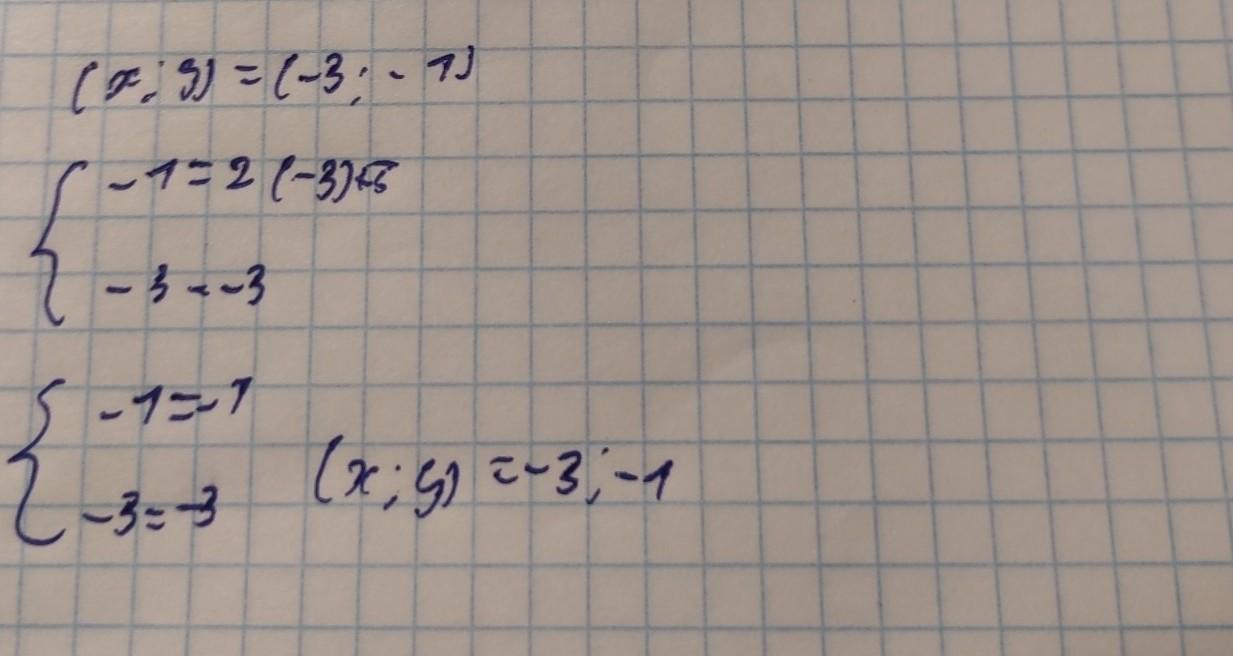 (x; y) = (-3; -1)
-1 = 2 (-3)+5
-3 = -3
-1 = -1
-3 = -3
(x; y) = -3; -1